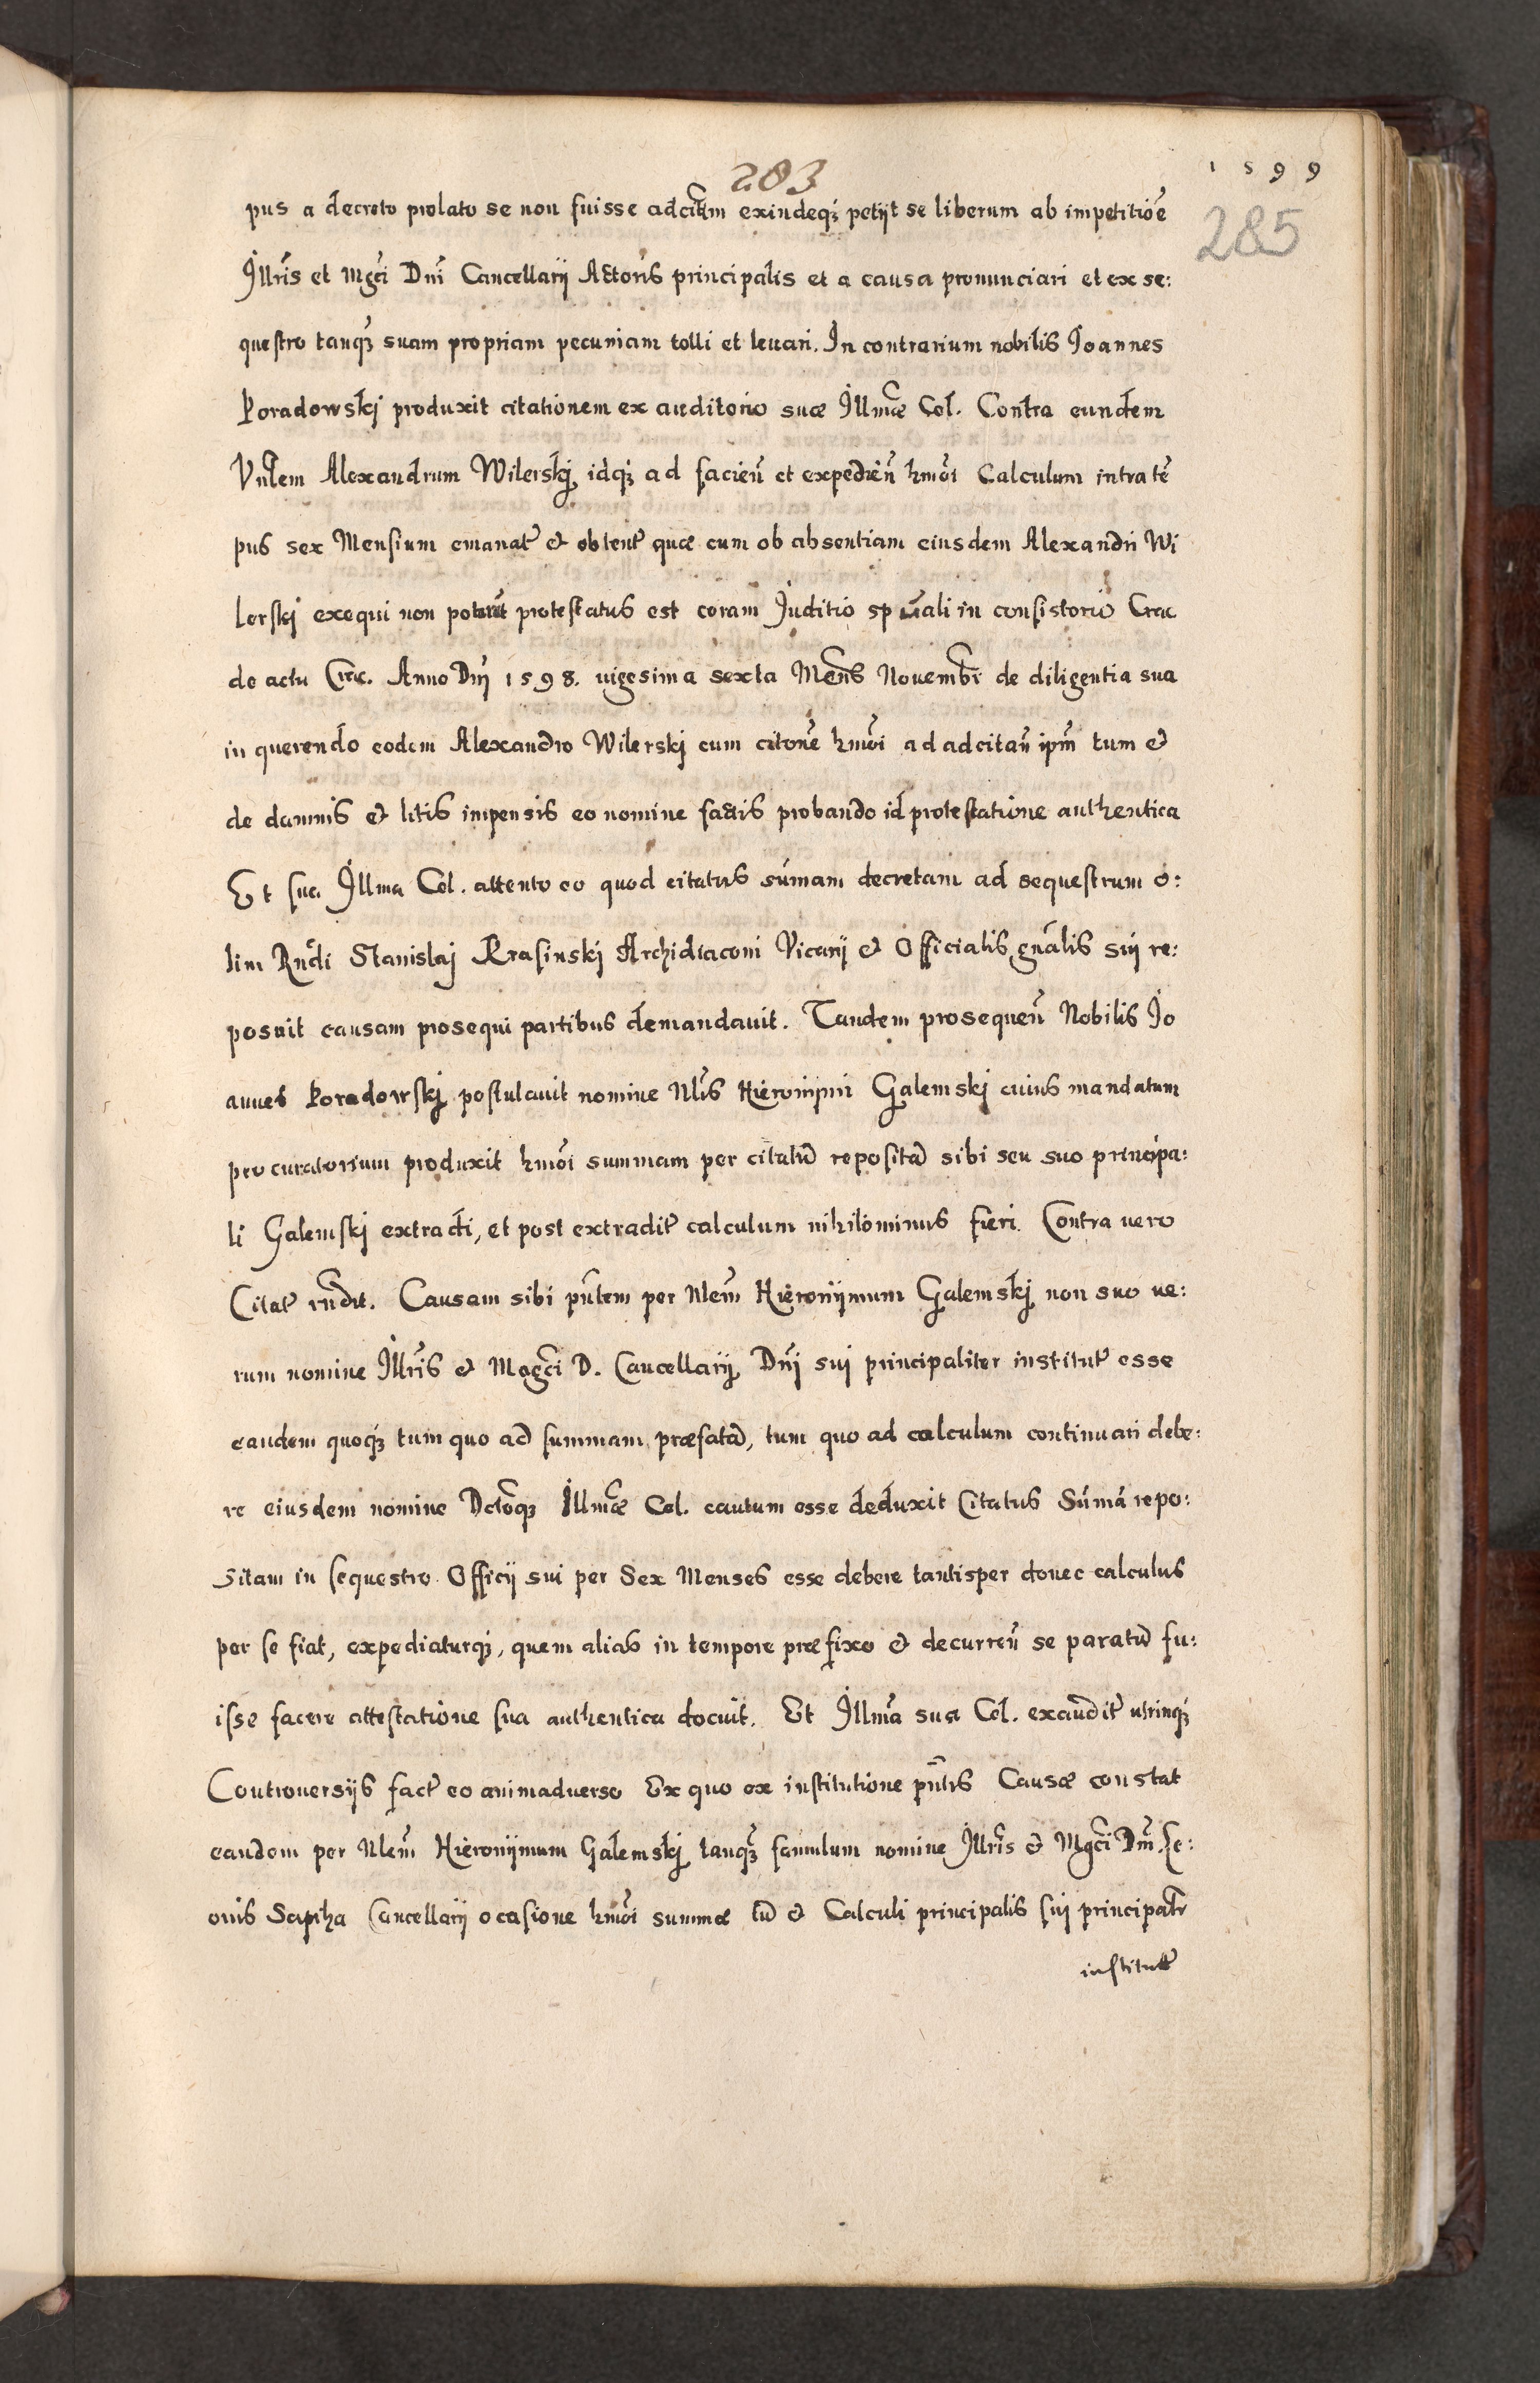 283
1599
285
pus a decreto prolato se non fuisse adcitm̃ exindeqȝ petijt se liberum ab impetitiõe
Illris̃ et Mgci̾ Dni̾ Cancellarij Actoris principalis et a causa pronunciari et ex se:
questro tanqȝ suam propriam pecuniam tolli et leuari. In contrarium nobilis Joannes
Poradowskj produxit citationem ex auditorio suæ Illmæ Cel. Contra eundem
Vnlem Alexandrum Wilerskj idqȝ ad facien̄ et expedien̄ hmõi Calculum intra tẽ
pus sex Mensium emanat̃ & obtent̃ quæ cum ob absentiam eiusdem Alexandri Wi
lerskj exequi non poterat protestatus est coram Juditio spũali in consistorio Crac
de actu Crac. Anno Dnĩ 1598. uigesima sexta Mens̃ Nouembr̃ de diligentia sua
in querendo eodem Alexandro Wilerskj cum citonẽ hmõi ad adcitan̄ ipm̃ tum &
de damnis & litis impensis eo nomine factis probando id protestatione authentica
Et sua Illma Cel. attento eo quod citatus sum̃am decretam ad sequestrum o:
lim Rndĩ Stanislaj Krasinskj Archidiaconi Vicarij & Officialis gnãlis sui re:
posuit causam prosequi partibus demandauit. Tandem prosequen̄ Nobilis Jo
annes Poradowskj postulauit nomine Nlis̃ Hieronijmi Galemskj cuius mandatum
procuratorium produxit hmõi summam per citatũ repositã sibi seu suo principa:
li Galemskj extradi, et post extradit̃ calculum nihilominus fieri. Contra vero
Citat̃ rndit̃. Causam sibi pn̄tem per Nlem̃ Hieronijmum Galemskj non suo ue:
rum nomine Illris̃ & Magci̾ D. Cancellarij Dnĩ sui principaliter institut̃ esse
eandem quoqȝ tum quo ad summam præfatã, tum quo ad calculum continuari debe:
re eiusdem nomine Dctoqȝ Illmæ Cel. cautum esse deduxit Citatus Sum̃ã repo:
sitam in sequestro Officij sui per Sex Menses esse debere tantisper donec calculus
per se fiat, expediaturqȝ, quem alias in tempore præfixo & decurren̄ se paratũ fu:
isse facere attestatione sua authentica docuit. Et Illmã sua Cel. exaudit̃ utrinqȝ
Controuersijs fact̃ eo animaduerso Ex quo ex institutione pn̄tis Causæ constat
eandem per Nlem̃ Hieronijmum Galemskj tanqȝ famulum nomine Illris̃ & Mgci̾ Dnĩ Le:
onis Sapiha Cancellarij ocasione hmõi summæ tũ & Calculi principalis sui principalr̃
institut̃